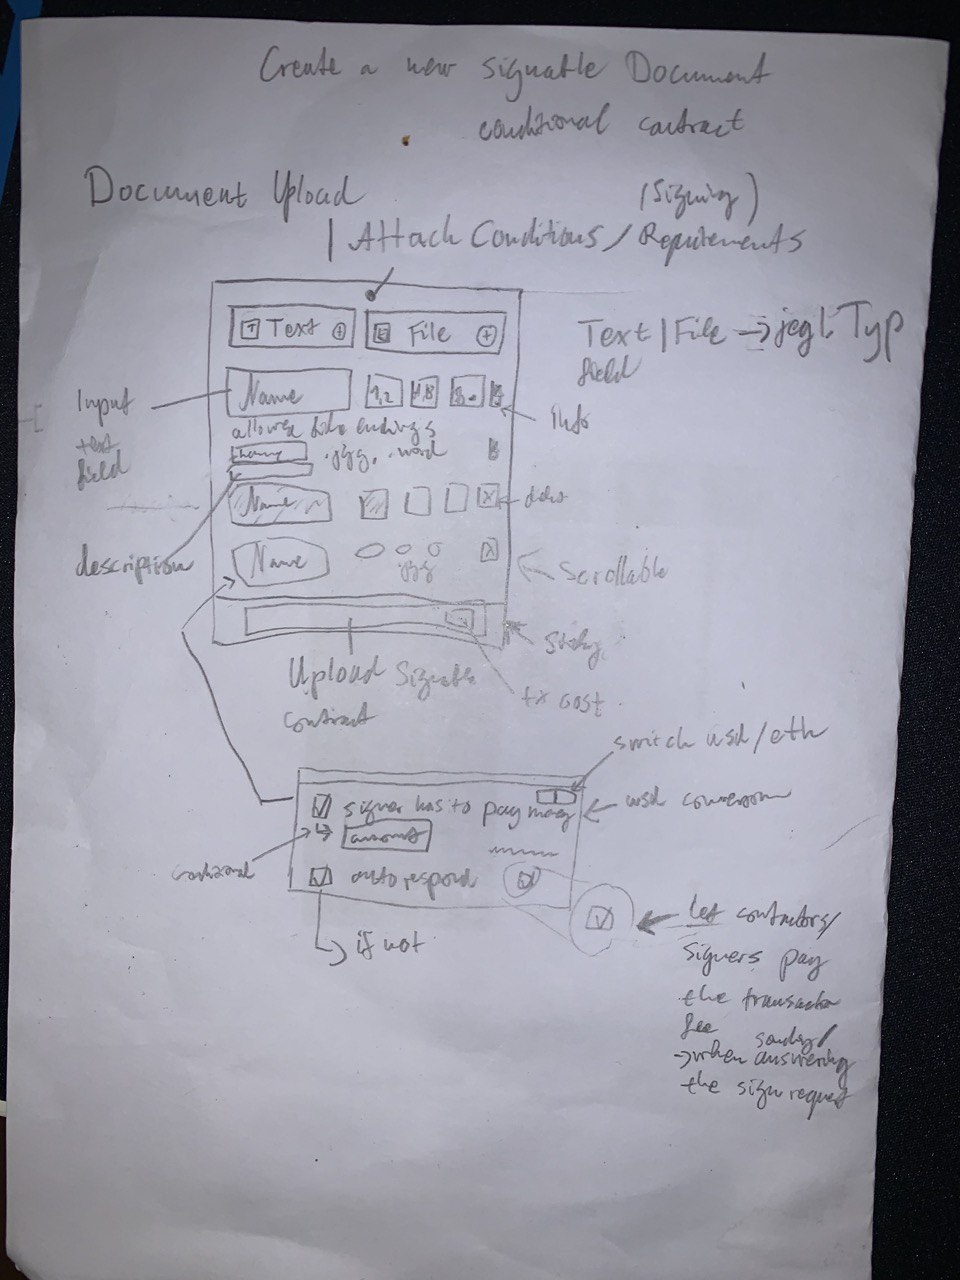 Create a new signable Document
conditional contract
Document Upload
(Signing)
| Attach Conditions / Requirements
T Text + File +
Text | File → jegl. Typ
field
Input
text
field
Name 1,2 A,B
Info
allowed file endings
.jpg, .word
Name
description
Name
.jpg
Scrollable
sticky
Upload Signable
contract
tx cost
switch usd/eth
signer has to pay
usd conversion
amount
conditional
auto respond
if not
let contractors/
signers pay
the transaction
fee
→ when answering
the sign request